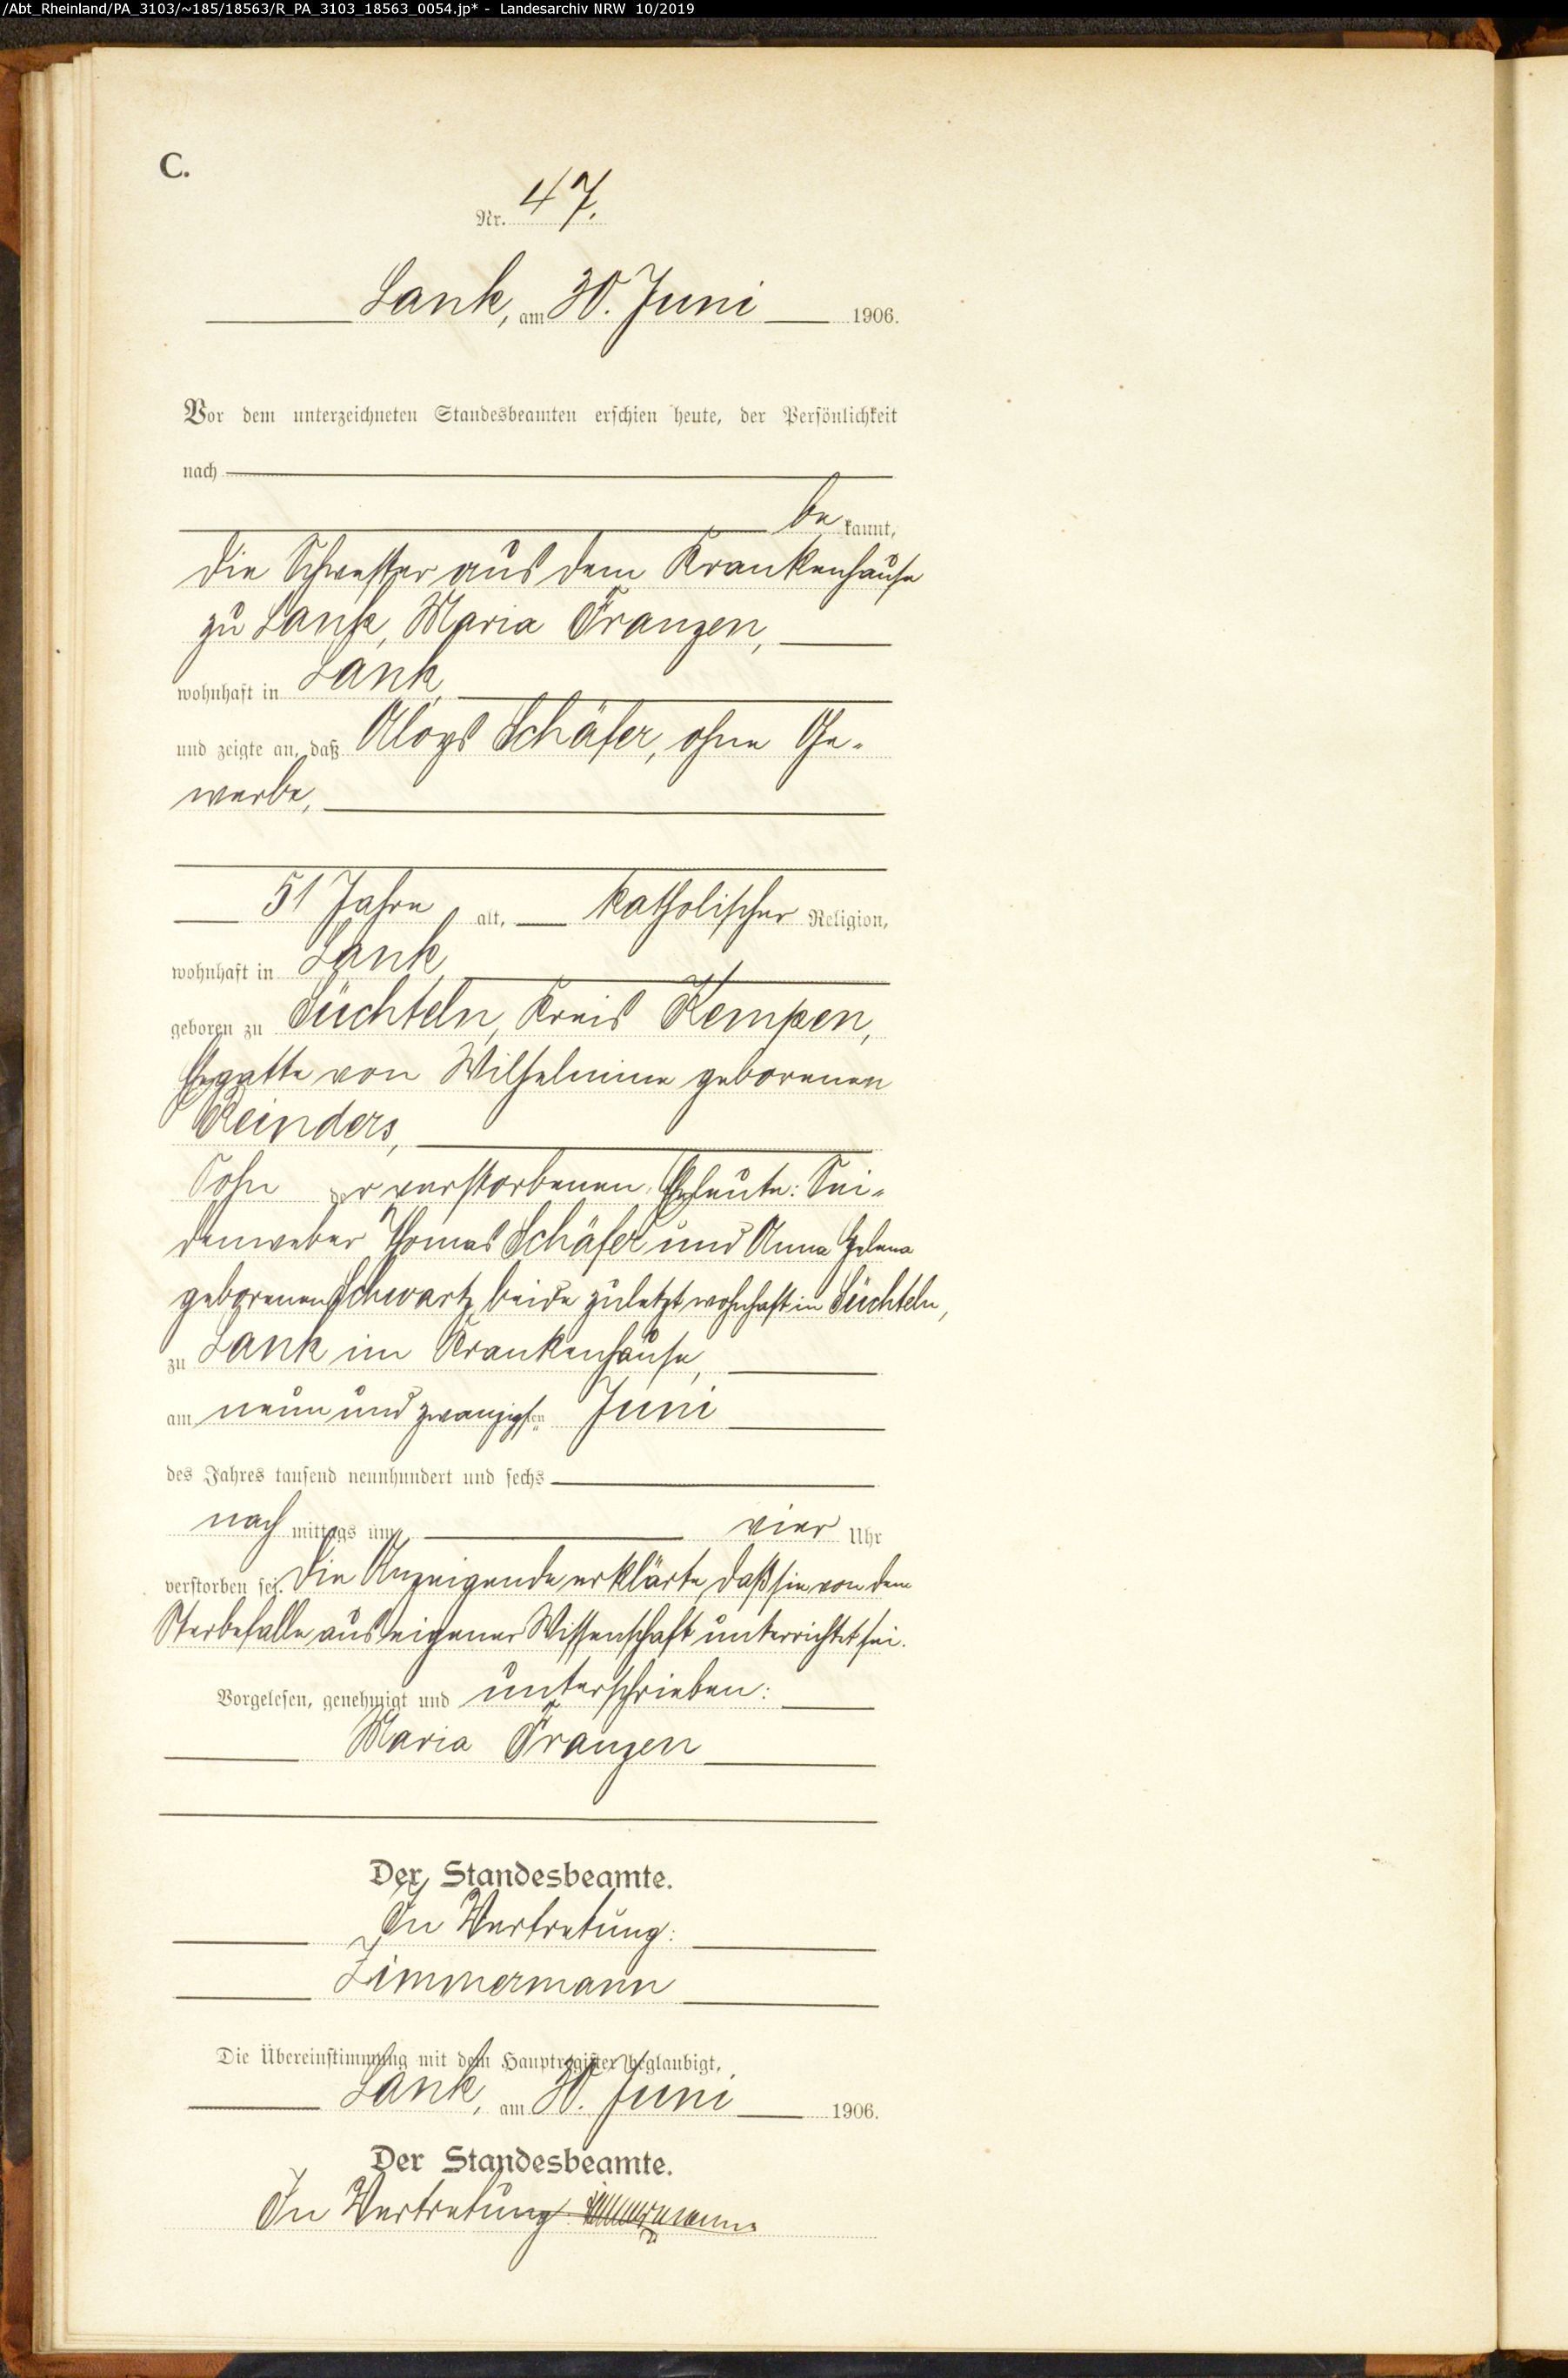 /Abt_Rheinland/PA_3103/~185/18563/R_PA_3103_18563_0054.jp* - Landesarchiv NRW 10/2019
C.
Nr. 47.
Lank, am 30. Juni 1906.
Vor dem unterzeichneten Standesbeamten erschien heute, der Persönlichkeit
nach
bekannt,
die Schwester aus dem Krankenhause
zu Lank, Maria Franzen,
wohnhaft in Lank,
und zeigte an, daß Aloys Schäfer, ohne Ge-
werbe,
51 Jahre alt, katholischer Religion,
wohnhaft in Lank,
geboren zu Süchteln, Kreis Kempen,
Ehegatte von Wilhelmine geborenen
Reinders,
Sohn der verstorbenen Eheleute: Sei-
denweber Thomas Schäfer und Anna Helena
geborenen Schwartz, beide zuletzt wohnhaft in Süchteln,
zu Lank im Krankenhause,
am neun und zwanzigsten Juni
des Jahres tausend neunhundert und sechs
nachmittags um vier Uhr
verstorben sei. Die Anzeigende erklärte, daß sie von dem
Sterbefalle aus eigener Wissenschaft unterrichtet sei.
Vorgelesen, genehmigt und unterschrieben:
Maria Franzen
Der Standesbeamte.
In Vertretung:
Zimmermann
Die Übereinstimmung mit dem Hauptregister beglaubigt,
Lank, am 30. Juni 1906.
Der Standesbeamte.
In Vertretung: Zimmermann